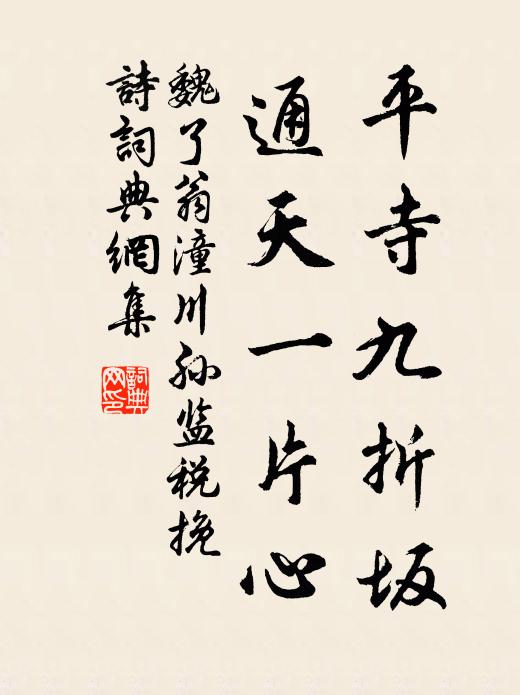 平寺九折坂
通天一片心
魏了翁潼川孙监税挽
詩詞典網集
詞典
网印